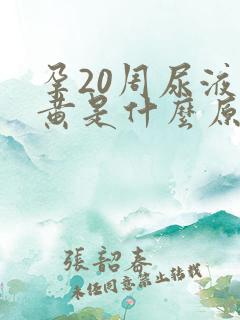 孕20周尿液
黄是什麼原
張韶春
未经同意禁止转载